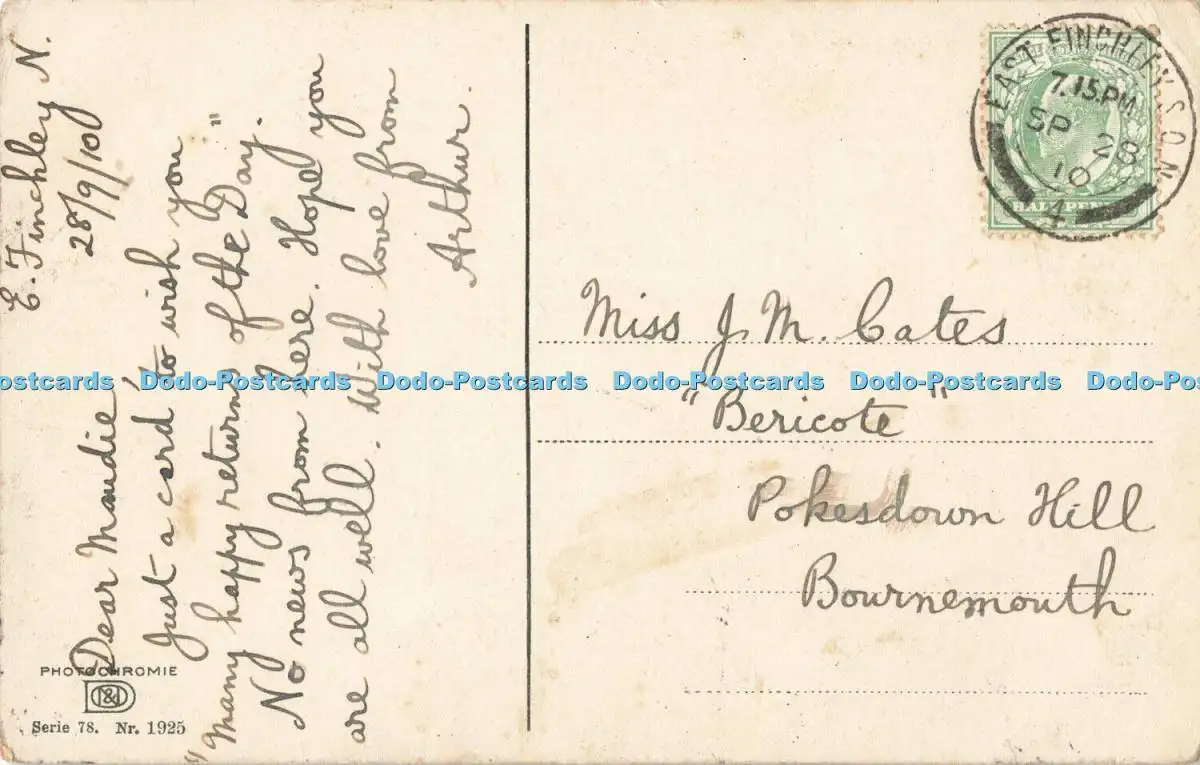 E. Finchley N.
28/9/10
Dear Maudie
Just a card to wish you
"Many happy returns of the Day."
No news from here. Hope you
are all well. With love from
Arthur.
PHOTOCHROMIE
D&D
Serie 78. Nr. 1925
EAST FINCHLEY S.O.N.
7.15.PM
SP 28
10
4
HALFPENNY
Miss J M. Cates
"Bericote"
Pokesdown Hill
Bournemouth
Dodo-Postcards Dodo-Postcards Dodo-Postcards Dodo-Postcards Dodo-Postcards Dodo-Postcards